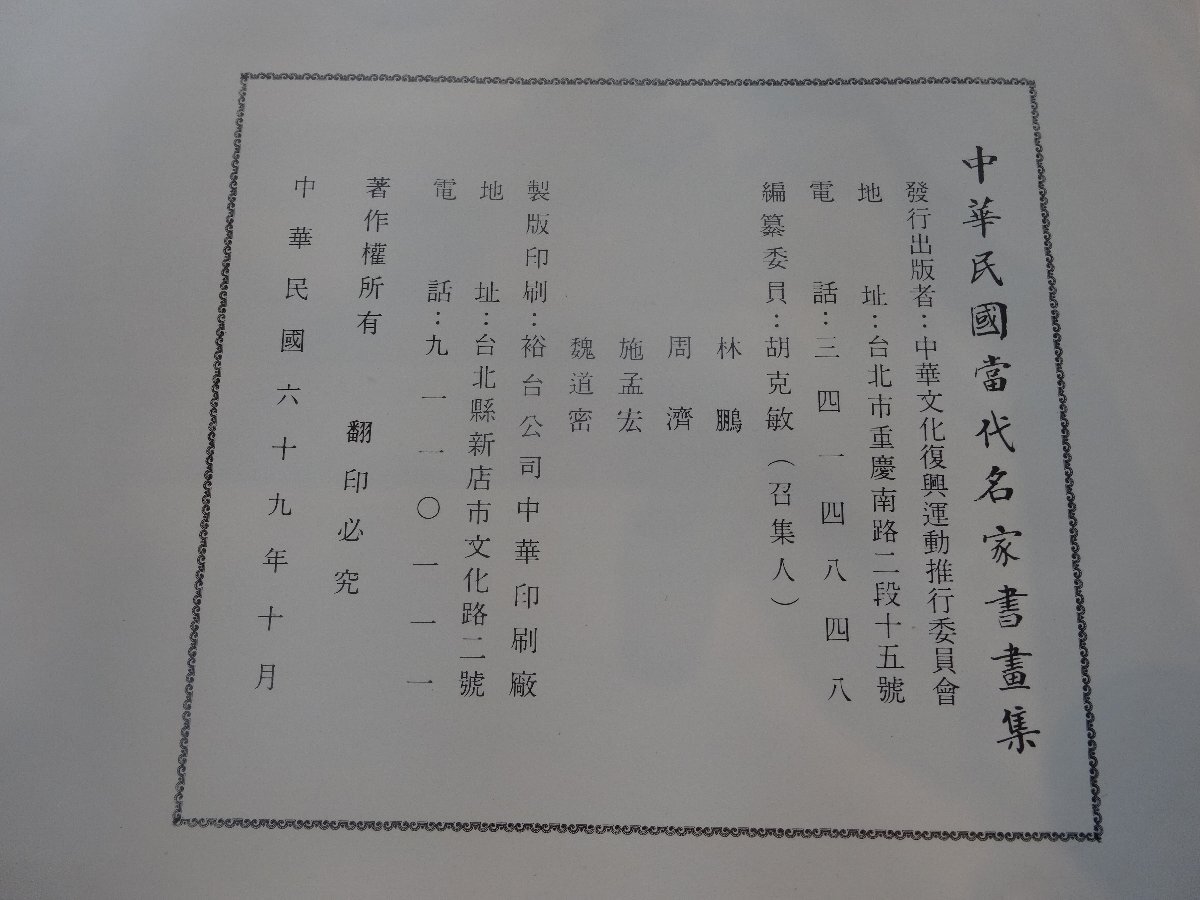 中華民國當代名家書畫集
發行出版者：中華文化復興運動推行委員會
地址：台北市重慶南路二段十五號
電話：三四一四八四八
編纂委員：胡克敏（召集人）
林鵬
周濟
施孟宏
魏道密
製版印刷：裕台公司中華印刷廠
地址：台北縣新店市文化路二號
電話：九一一〇一一一
著作權所有 翻印必究
中華民國六十九年十月